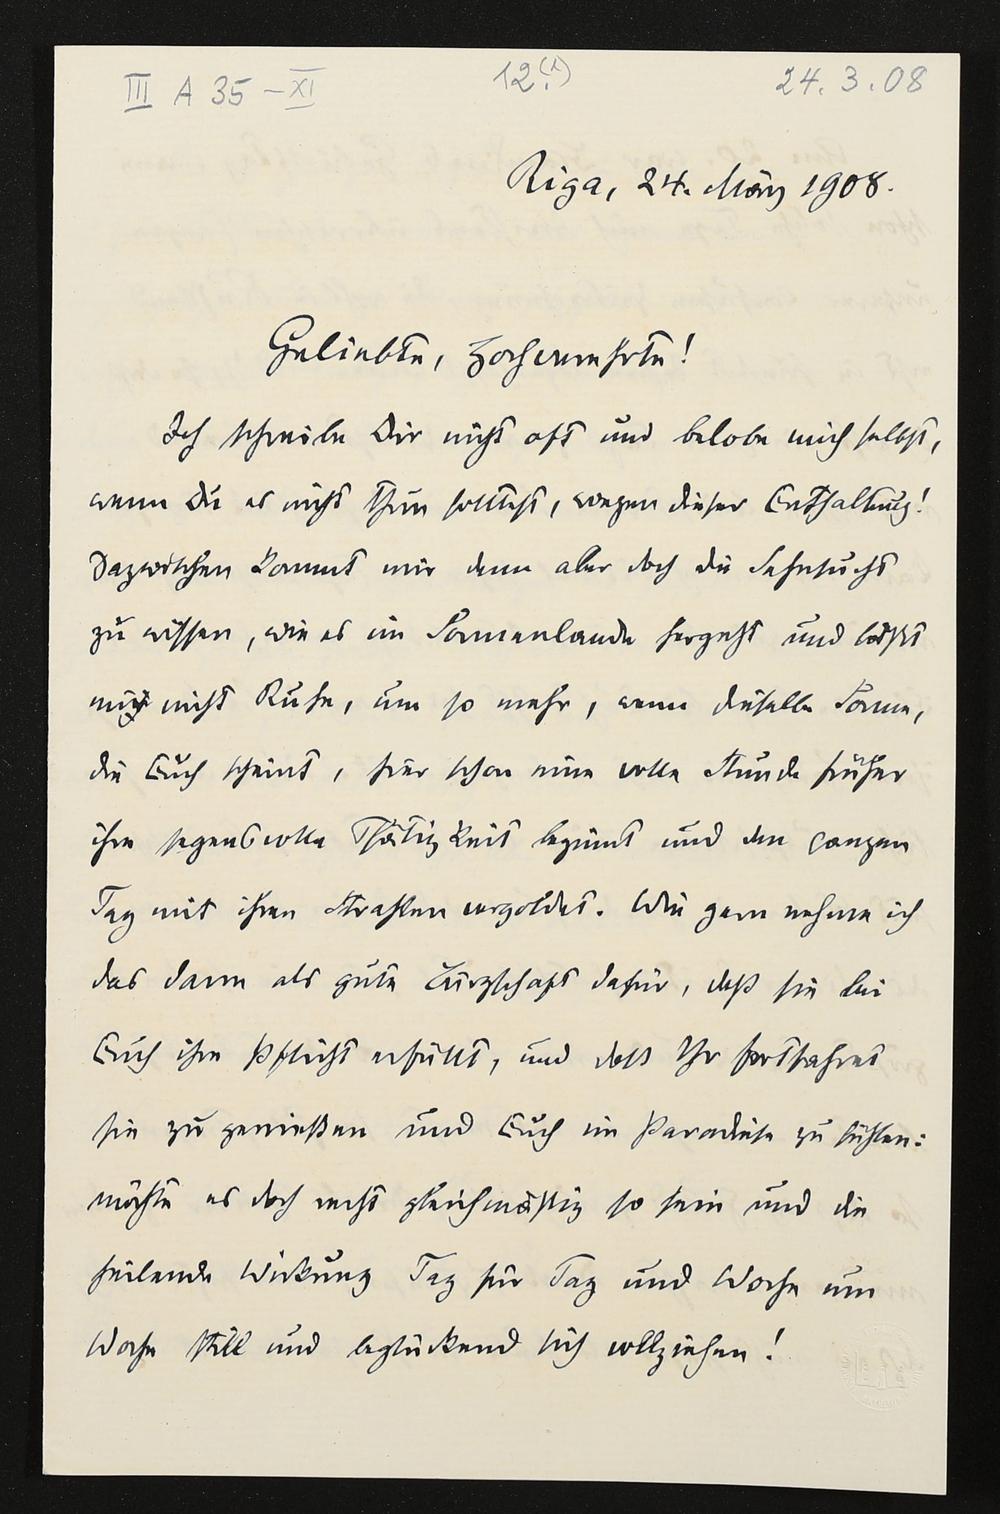 III A 35 - XI
12.(1)
24.3.08
Riga, 24. März 1908.
Geliebte, Hochverehrte!
Ich schreibe Dir nicht oft und belobe mich selbst,
wenn Du es nicht thun solltest, wegen dieser Enthaltung!
Dazwischen kommt mir denn aber doch die Sehnsucht
zu wissen, wie es im Sonnenlande hergeht und läßt
mich nicht Ruhe, um so mehr, wenn dieselbe Sonne,
die Euch scheint, hier schon eine volle Stunde früher
ihre segensvolle Thätigkeit beginnt und den ganzen
Tag mit ihren Strahlen vergoldet. Wie gern nehme ich
das dann als gute Bürgschaft dafür, daß sie bei
Euch ihre Pflicht erfüllt, und daß Ihr fortfahret
sie zu genießen und Euch im Paradiese zu fühlen:
möchte es doch recht gleichmäßig so sein und die
heilende Wirkung Tag für Tag und Woche um
Woche still und beglückend sich vollziehen!